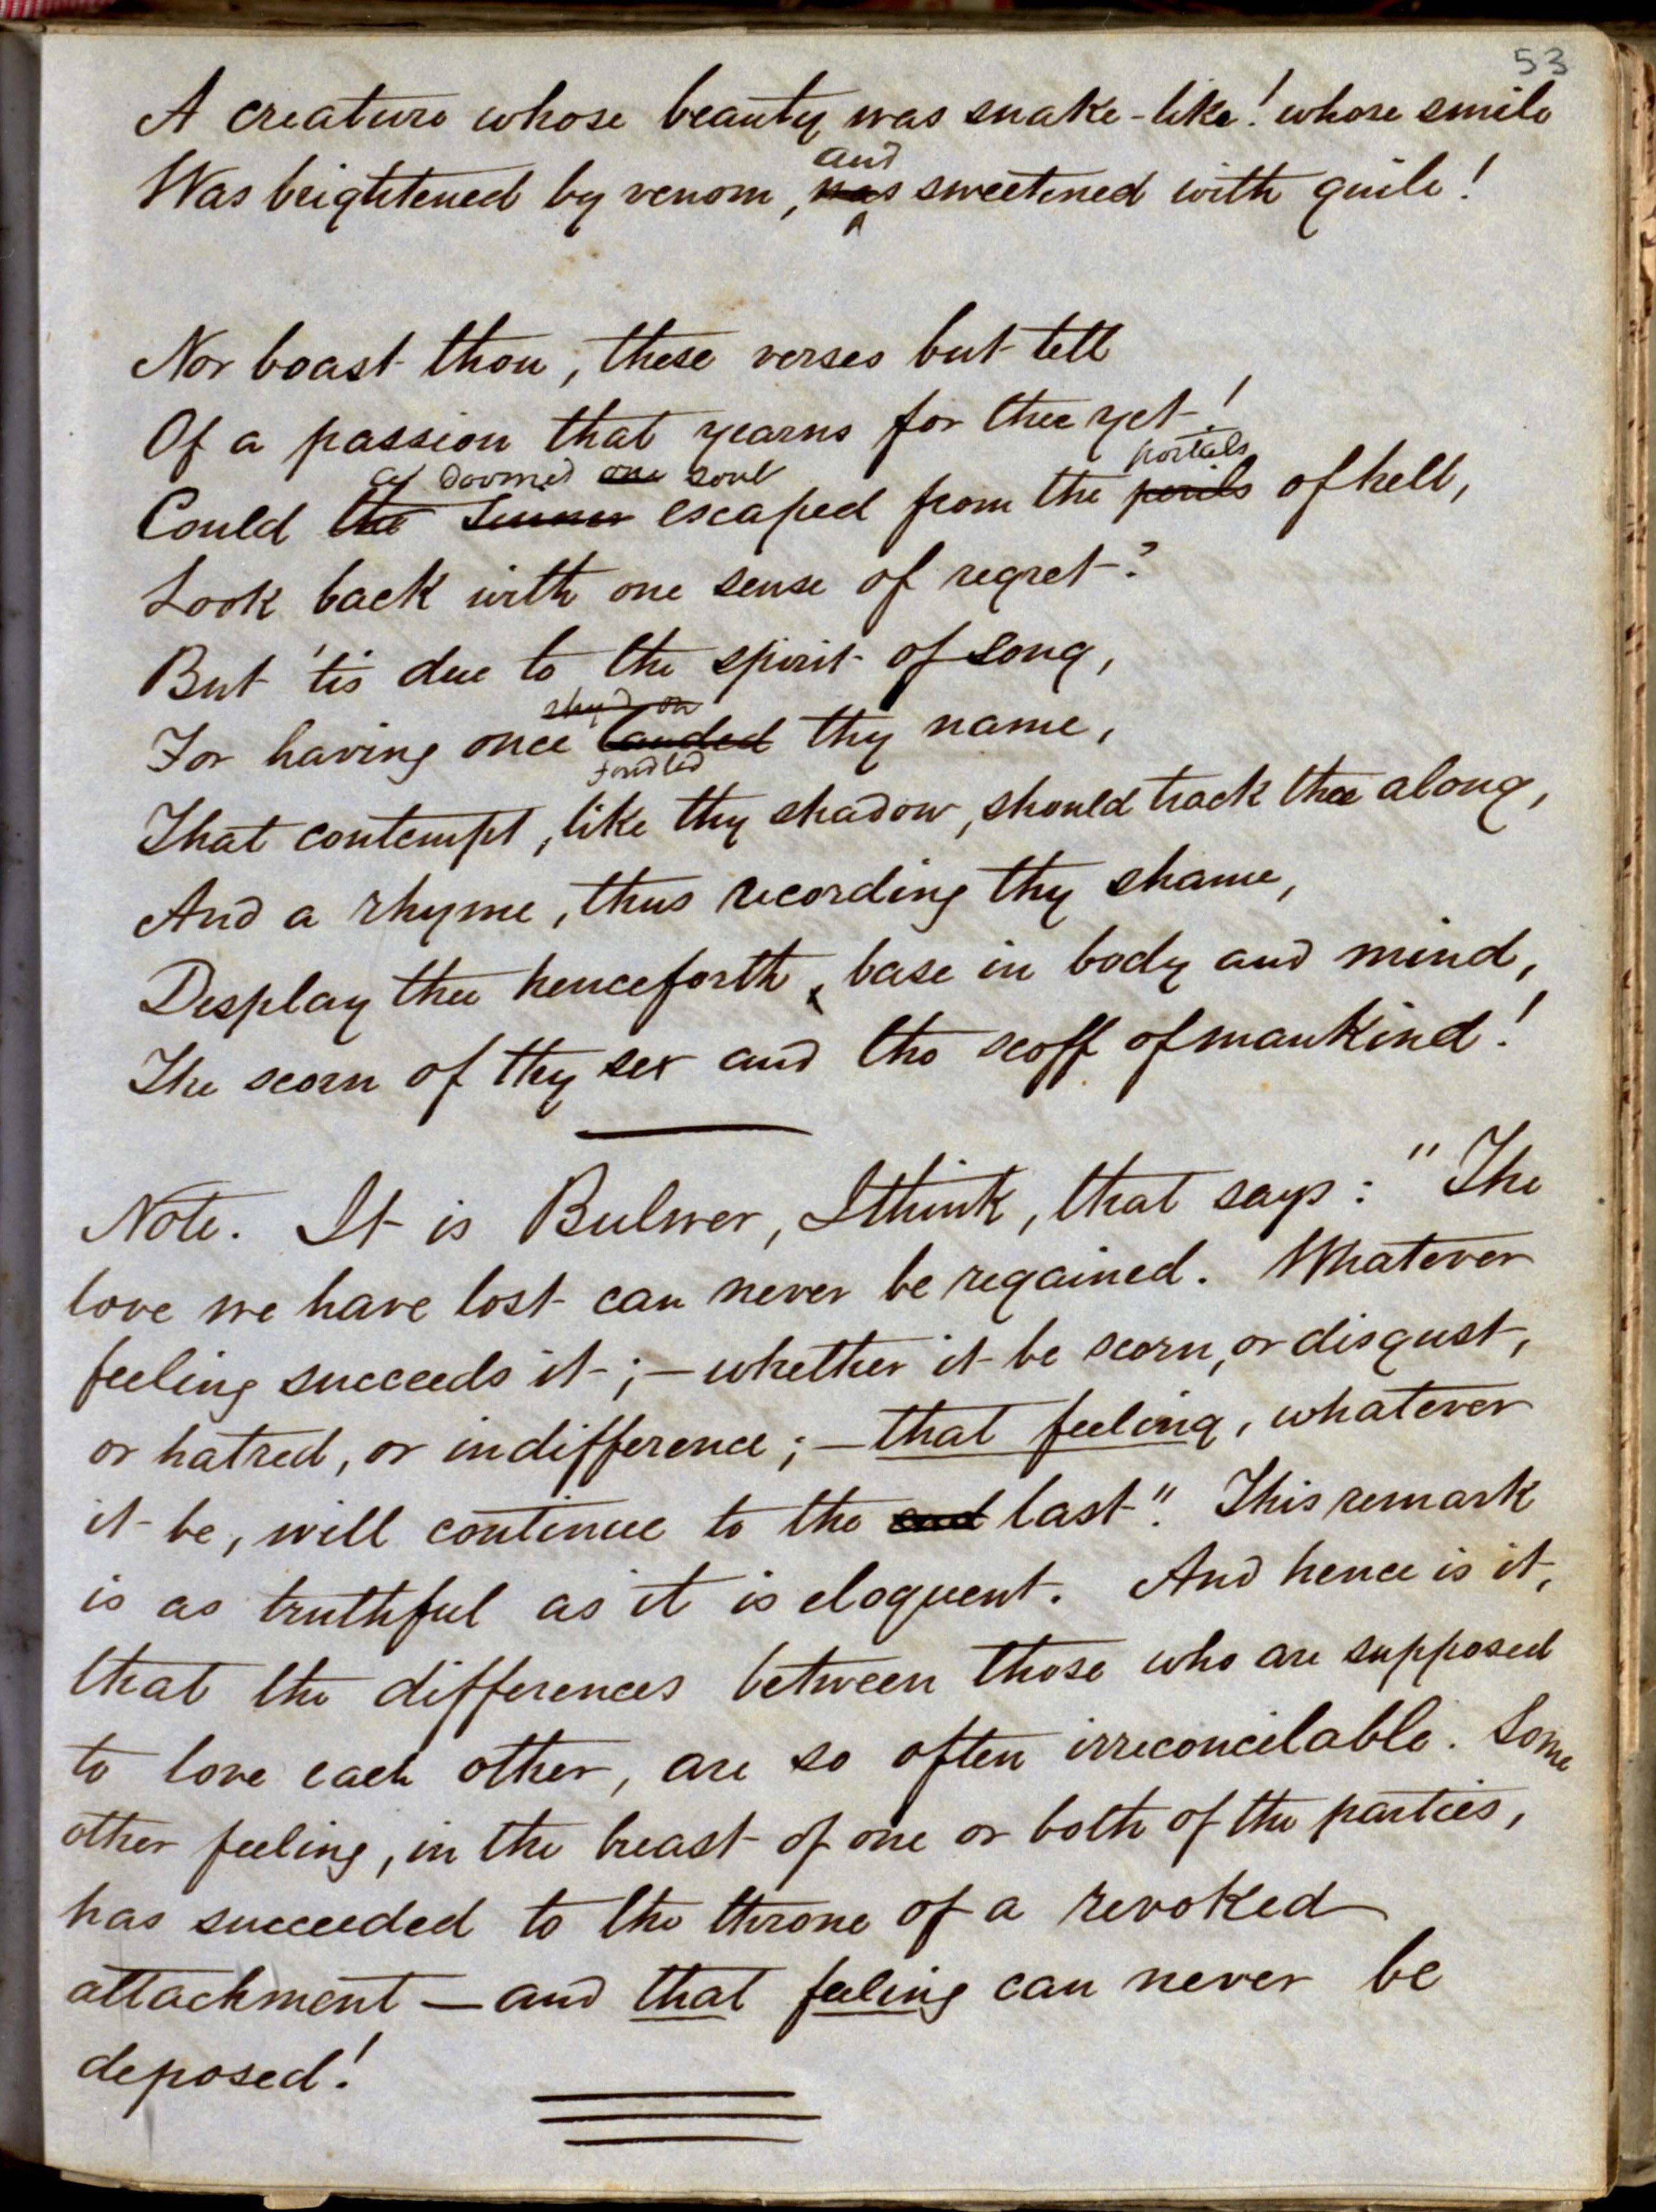 53
A creature whose beauty was snake-like! whose smile
and
Was brightened by venom, was sweetened with guile!
Nor boast thou, these verses but tell
Of a passion that yearns for thee yet!
portals
doomed one soul
Could the Sinner escaped from the perils of hell,
Look back with one sense of regret?
But 'tis due to the spirit of song,
For having once lauded thy name,
fondled
That contempt, like thy shadow, should track thee along,
And a rhyme, thus recording thy shame,
Display thee henceforth, base in body and mind,
The scorn of thy sex and the scoff of mankind!
Note. It is Bulwer, I think, that says: "The
love we have lost can never be regained. Whatever
feeling succeeds it; – whether it be scorn, or disgust,
or hatred, or indifference; – that feeling, whatever
it be, will continue to the end last". This remark
is as truthful as it is eloquent. And hence is it,
that the differences between those who are supposed
to love each other, are so often irreconcilable. Some
other feeling, in the breast of one or both of the parties,
has succeeded to the throne of a revoked
attachment – and that feeling can never be
deposed!